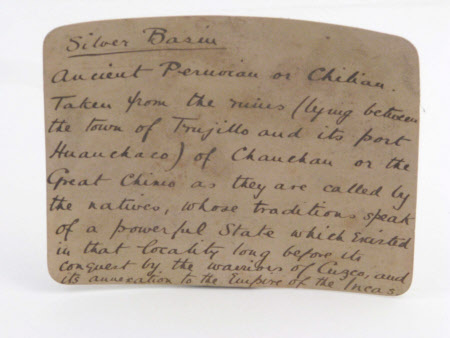 Silver Basin
Ancient Peruvian or Chilian.
Taken from the ruins (lying between
the town of Trujillo and its port
Huanchaco) of Chanchan or the
Great Chimo as they are called by
the natives, whose traditions speak
of a powerful State which Existed
in that locality long before its
conquest by the warriors of Cuzco, and
its annexation to the Empire of the Incas.